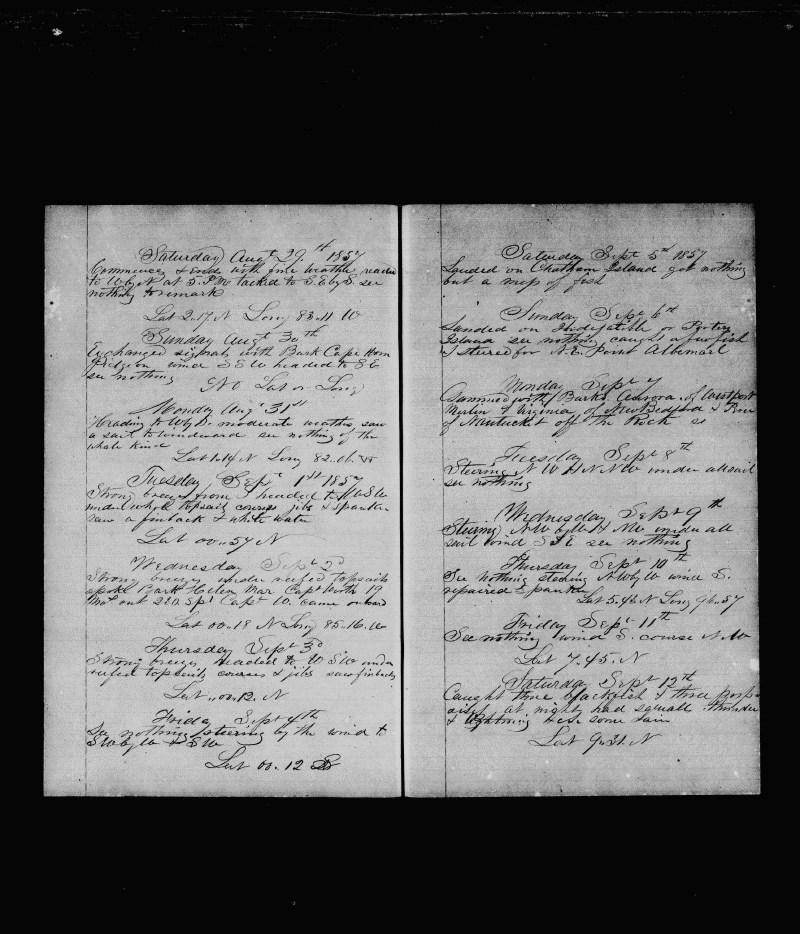 Saturday Augt 29th 1857
Commences & ends with fine weather headed
to W by N at 5 PM tacked to S.E by S. see
nothing to remark
Lat 2..17 N Long 83..11 W
Sunday Augt 30th
Exchanged signals with Bark Cape Horn
Pidgeon wind S S W headed to S E
see nothing
No Lat or Long
Monday Augt 31st
Heading to W by S. moderate weather saw
a sail to windward see nothing of the
whale kind
Lat 1..14 N Long 82..16. W
Tuesday Sept 1st 1857
Strong breezes from S headed to WSW
under whole topsails courses jibs & spanker
saw a finback & white water
Lat 00..57 N
Wednesday Sept 2d
Strong breezes under reefed topsails
spoke Bark Helen Mar Capt Worth 19
Mos out 220 Sp Capt W. came onboard
Lat 00..18 N Long 85..16. W
Thursday Sept 3d
Strong breezes headed to W S W under
reefed topsails courses & jibs saw finbacks
Lat ..00..12. N
Friday Sept 4th
See nothing steering by the wind to
S W by W & S W
Lat 00..12 S
Saturday Sept 5th 1857
Landed on Chatham Island got nothing
but a mess of fish
Sunday Sept 6th
Landed on Indefatible or Porters
Island see nothing caught a few fish
& steered for N.E. Point Albemarl
Monday Sept 7
Gammed with Barks Aurora of Westport
Merlin & Virginia of New Bedford &
of Nantucket off the Rock
Tuesday Sept 8th
Steering N W & N N W under all sail
see nothing
Wednesday Sept 9th
Steering N W by W & N W under all
sail wind S S E see nothing
Thursday Sept 10th
See nothing steering N W by W wind S.
repaired Spanker
Lat 5..46 N Long 96..57
Friday Sept 11th
See nothing wind S. course N W
Lat 7..45. N
Saturday Sept 12th
Caught three blackfish & three porp
oises at night had squall thunder
& lightning some rain
Lat 9..31. N